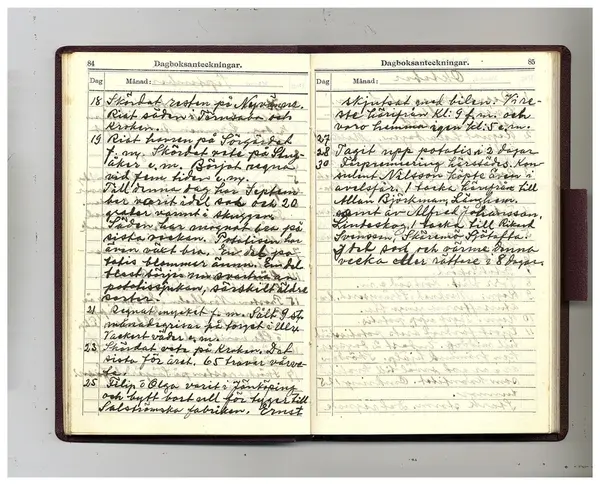 84
Dagboksanteckningar.
Dag
Månad:
18 Skördat resten på Nyvännare.
Rist säden i Tärnsaba och
Kroken.
19 Rist havren på Sörgärdet
f. m. Skördat vete på Stug-
åker e. m. Börjat regna
vid fem tiden e. m.
Till denna dag har Septem-
ber varit idel sol och 20
grader varmt i skuggan.
Säden har mognat bra på
sista veckan. Potatisen har
även växt bra. En del po-
tatis blommar ännu. En del
blast börjar nu svartna av
potatissjukan, särskilt äldre
sorter.
21 Regnat mycket f. m. Sålt 9 st
månadsgrisar på torget i Ulr.
Vackert väder e. m.
23 Skördat vete på Kroken. Det
sista för året. 65 travar vårve-
te.
25 Filip o Olga varit i Jönköping
och bytt bort ull för tyger till
Salströmska fabriken. Ernst
85
Dagboksanteckningar.
Dag
Månad: Oktober
skjutsat med bilen. Vi re-
ste härifrån kl: 9 f. m. och
voro hemma igen kl: 5 e. m.
27
28 Tagit upp potatis i 2 dagar
30 Fårpremiering härstädes. Kon-
sulent Nilsson köpte även i
avelsfår. 1 tacka härifrån till
Allan Björkman, Länghem.
samt av Alfred Johansson,
Lindeskog 1 tacka till Rikard
Svensson, Skåremo Sjötofta.
Idel sol och värme denna
vecka eller rättare i 8 dagar